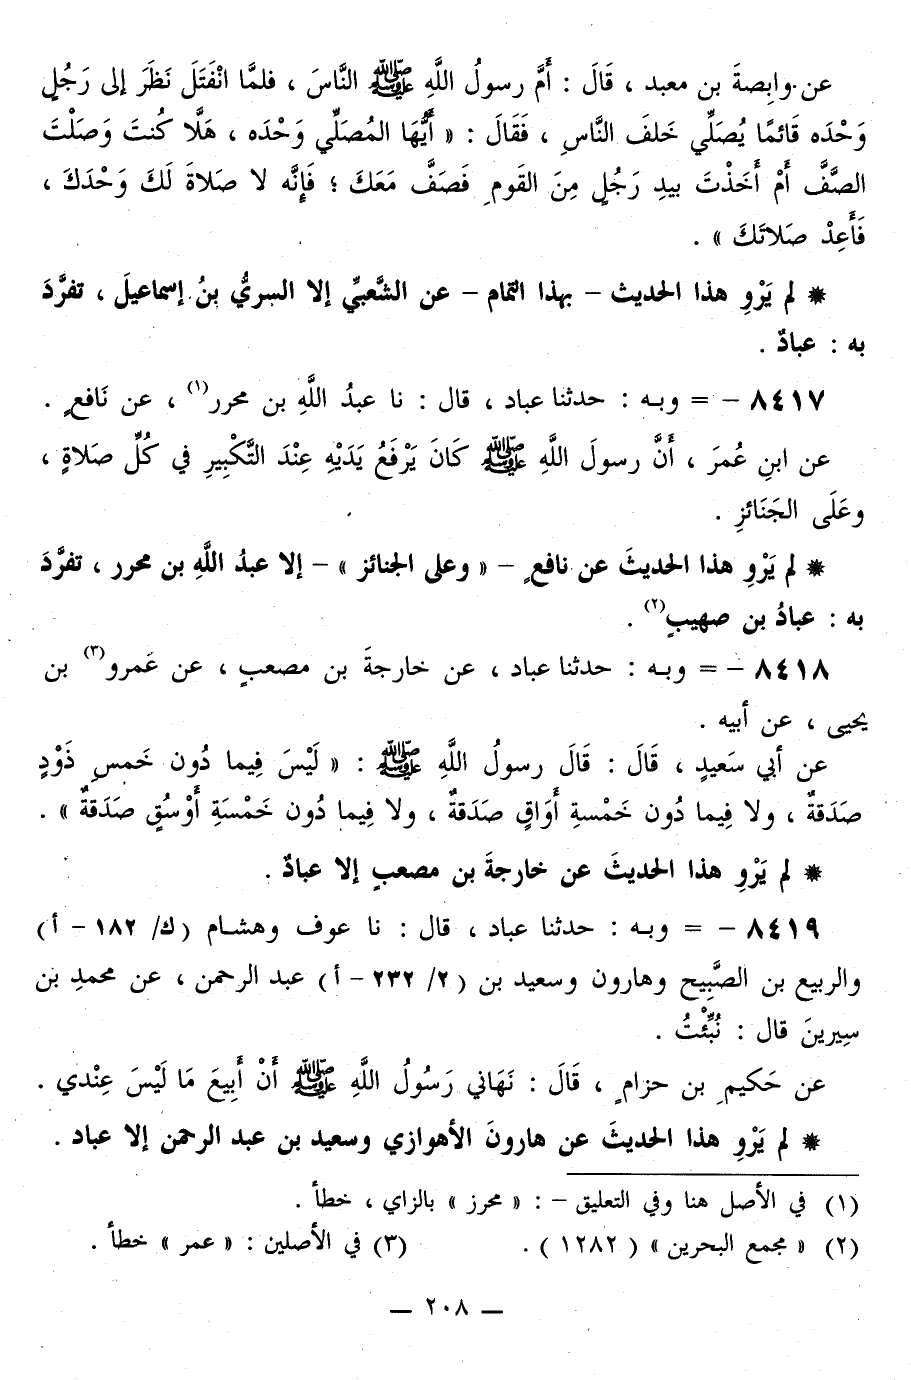 عن وابِصةَ بن معبد ، قَالَ : أَمَّ رسولُ اللَّهِ ﷺ النَّاسَ ، فلمَّا انْفَتَلَ نَظَرَ إلى رَجُلٍ
وَحْدَه قَائمًا يُصَلِّي خَلفَ النَّاسِ ، فَقَالَ : « أَيُّهَا المُصَلِّي وَحْدَه ، هَلَّا كُنتَ وَصَلْتَ
الصَّفَّ أَمْ أَخَذْتَ بيدِ رَجُلٍ مِنَ القَومِ فَصَفَّ مَعَكَ ؛ فَإِنَّه لا صَلاةَ لَكَ وَحْدَكَ ،
فَأَعِدْ صَلاتَكَ » .
* لم يَرْوِ هذا الحديث – بهذا التمام – عن الشَّعبيِّ إلا السريُّ بنُ إسماعيلَ ، تفرَّدَ
به : عبادٌ .
٨٤١٧ – = وبـه : حدثنا عباد ، قال : نا عبدُ اللَّهِ بن محرر(١) ، عن نَافعٍ .
عن ابنِ عُمرَ ، أَنَّ رسولَ اللَّهِ ﷺ كَانَ يَرْفَعُ يَدَيْهِ عِنْدَ التَّكْبِيرِ في كُلِّ صَلاةٍ ،
وعَلَى الجَنَائزِ .
* لم يَرْوِ هذا الحديثَ عن نافعٍ – « وعلى الجنائز » – إلا عبدُ اللَّهِ بن محرر ، تفرَّدَ
به : عبادُ بن صهيبٍ(٢) .
٨٤١٨ – = وبـه : حدثنا عباد ، عن خارجةَ بن مصعبٍ ، عن عَمرو(٣) بن
يحيى ، عن أبيه .
عن أبي سَعيدٍ ، قَالَ : قَالَ رسولُ اللَّهِ ﷺ : « لَيْسَ فِيما دُون خَمسِ ذَوْدٍ
صَدَقةٌ ، ولا فِيما دُون خَمْسةِ أَوَاقٍ صَدَقةٌ ، ولا فِيما دُون خَمْسَةِ أَوْسُقٍ صَدَقةٌ » .
* لم يَرْوِ هذا الحديثَ عن خارجةَ بن مصعبٍ إلا عبادٌ .
٨٤١٩ – = وبـه : حدثنا عباد ، قال : نا عوف وهشـام (ك/ ١٨٢ – أ)
والربيع بن الصَّبِيح وهارون وسعيد بن (٢/ ٢٣٢ – أ) عبد الرحمن ، عن محمدِ بن
سِيرينَ قال : نُبِّئْتُ .
عن حَكيمِ بن حزامٍ ، قَالَ : نَهَاني رَسُولُ اللَّهِ ﷺ أَنْ أَبِيعَ مَا لَيْسَ عِنْدي .
* لم يَرْوِ هذا الحديثَ عن هارونَ الأهوازي وسعيد بن عبد الرحمن إلا عباد .
(١) في الأصل هنا وفي التعليق – : « محرز » بالزاي ، خطأ .
(٢) « مجمع البحرين » ( ١٢٨٢ ) . (٣) في الأصلين : « عمر » خطأ .
— ٢٠٨ —